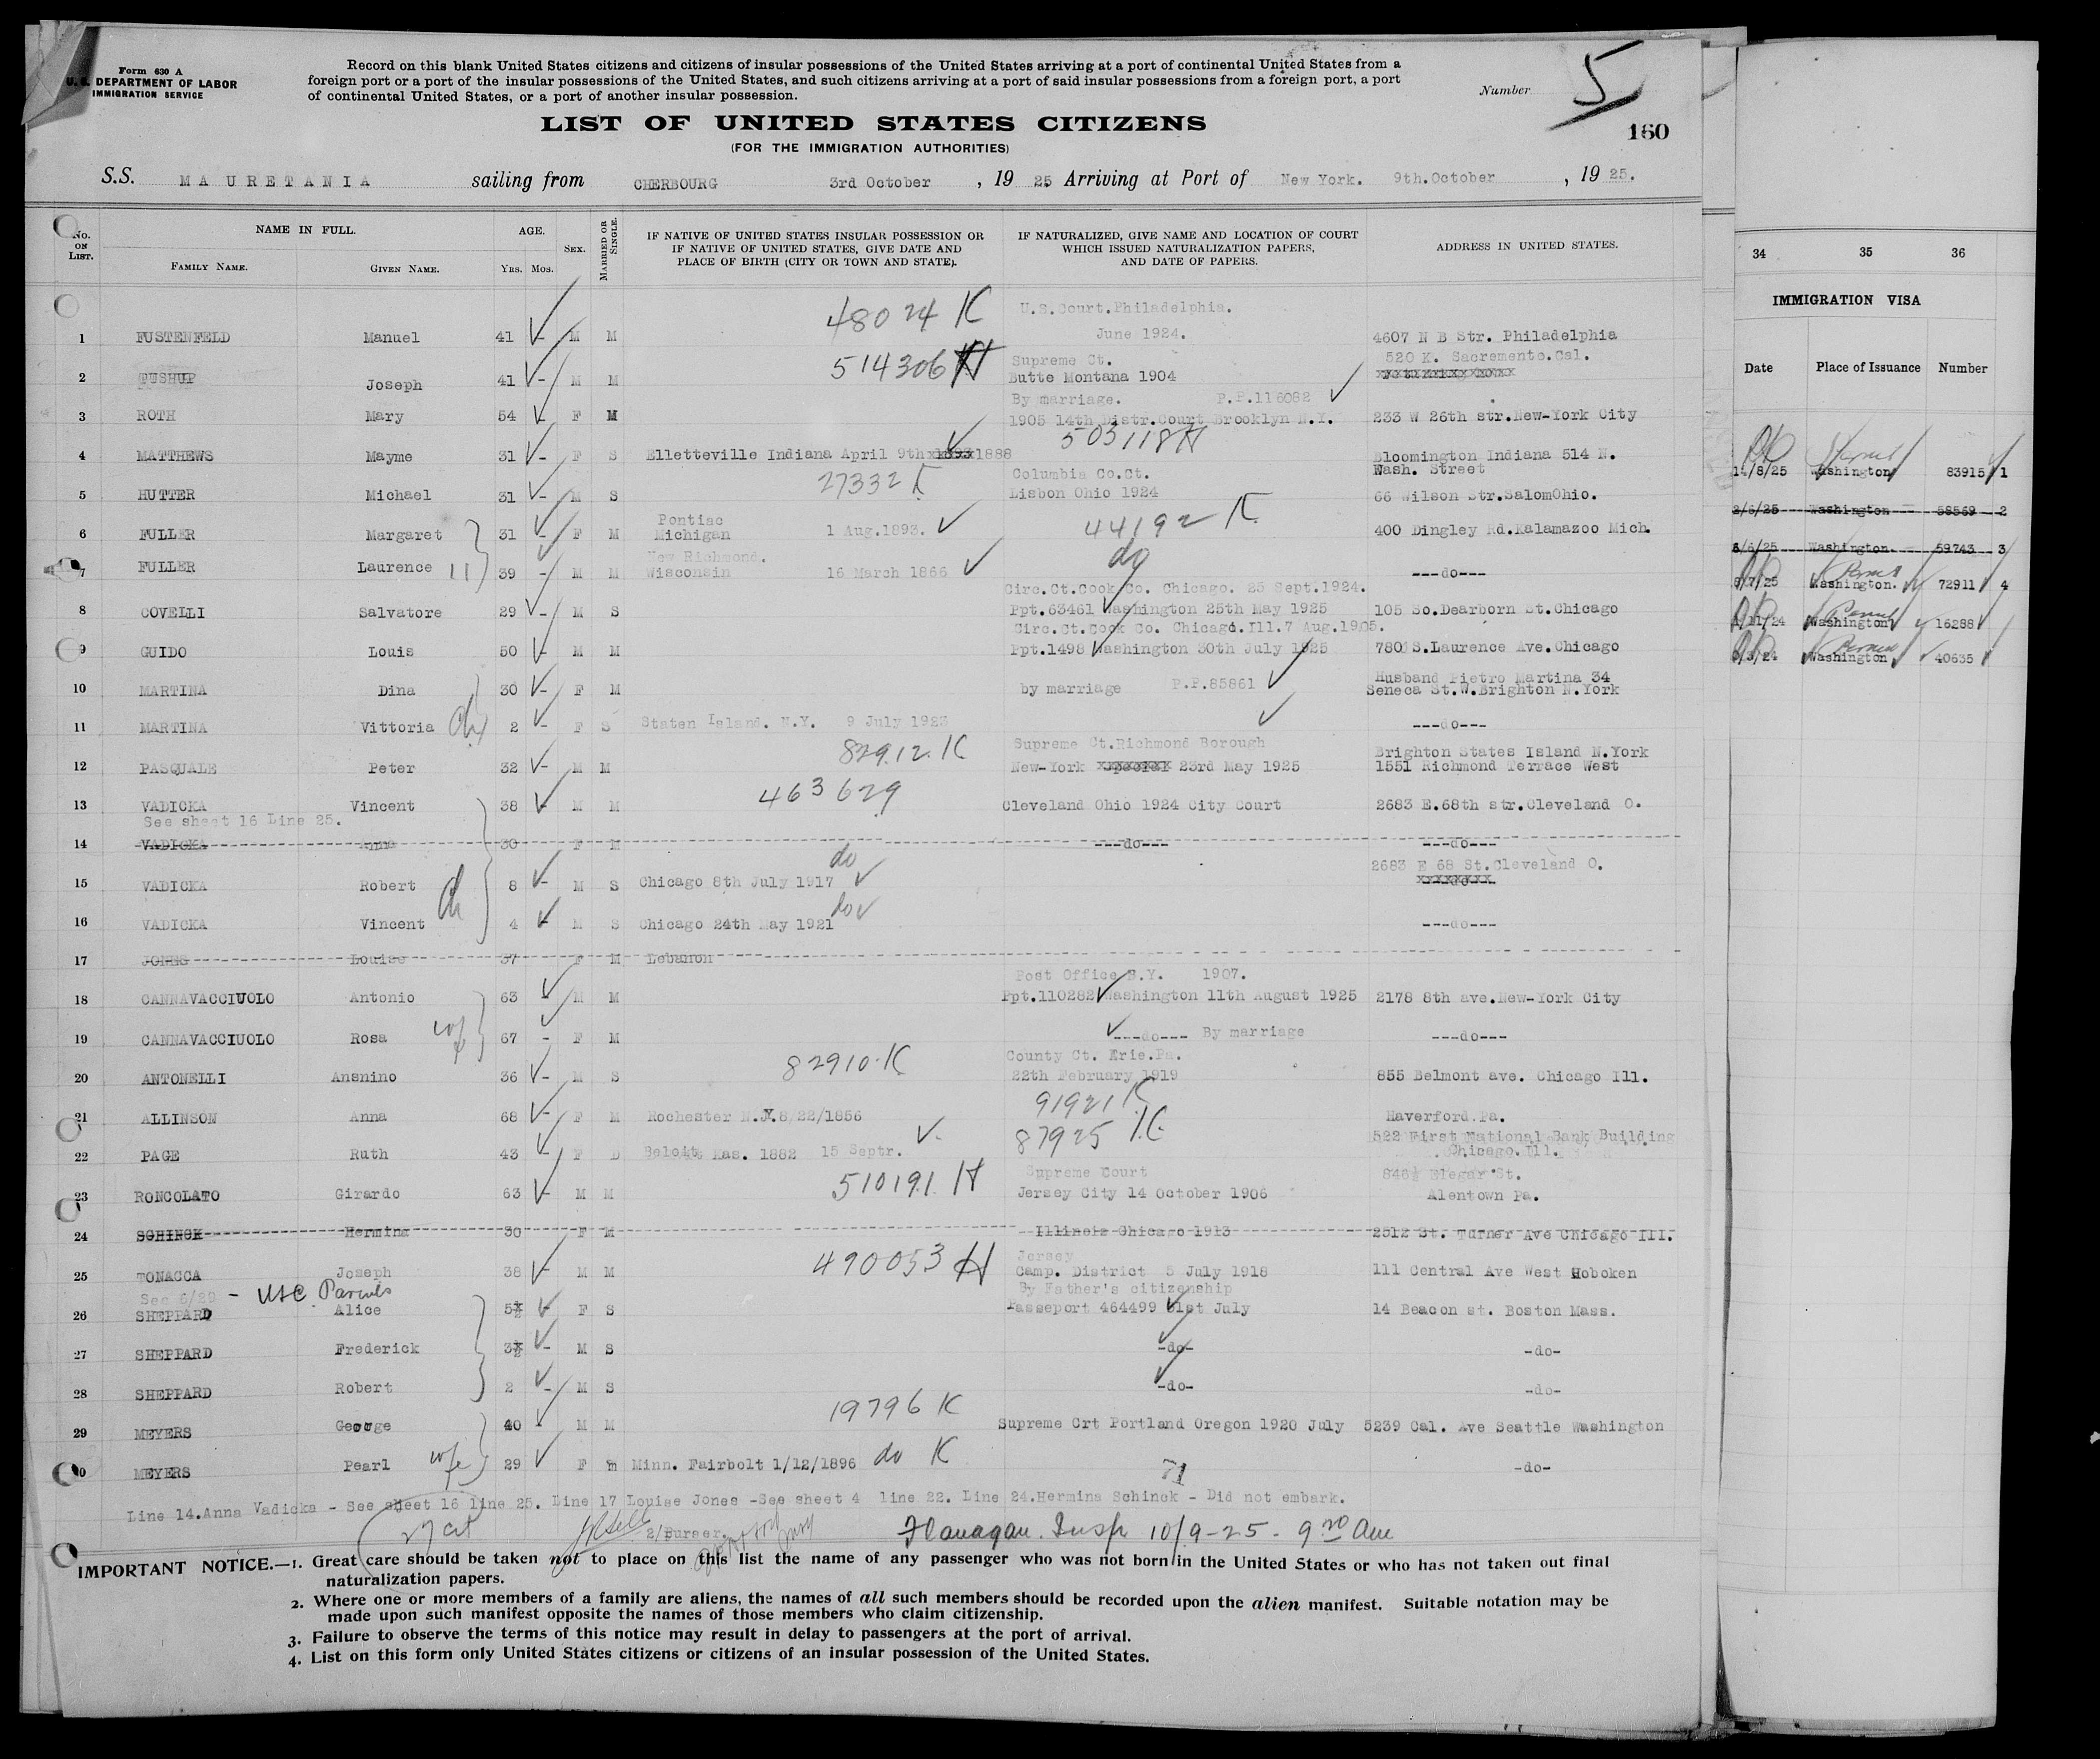 Form 630 A
U. S. DEPARTMENT OF LABOR
IMMIGRATION SERVICE
Record on this blank United States citizens and citizens of insular possessions of the United States arriving at a port of continental United States from a
foreign port or a port of the insular possessions of the United States, and such citizens arriving at a port of said insular possessions from a foreign port, a port
of continental United States, or a port of another insular possession.
Number 5
160
LIST OF UNITED STATES CITIZENS
(FOR THE IMMIGRATION AUTHORITIES)
S.S. MAURETANIA sailing from CHERBOURG 3rd October , 19 25 Arriving at Port of New York. 9th.October , 19 25.
No. ON LIST. NAME IN FULL. AGE. SEX. MARRIED OR SINGLE. IF NATIVE OF UNITED STATES INSULAR POSSESSION OR IF NATIVE OF UNITED STATES, GIVE DATE AND PLACE OF BIRTH (CITY OR TOWN AND STATE). IF NATURALIZED, GIVE NAME AND LOCATION OF COURT WHICH ISSUED NATURALIZATION PAPERS, AND DATE OF PAPERS. ADDRESS IN UNITED STATES.
FAMILY NAME. GIVEN NAME. YRS. MOS.
48024 K U.S.Court.Philadelphia.
1 FUSTENFELD Manuel 41 - M M June 1924. 4607 N B Str. Philadelphia
514306 H Supreme Ct. 520 K. Sacremento.Cal.
2 TUSHUP Joseph 41 - M M Butte Montana 1904
By marriage. P.P.118082
3 ROTH Mary 54 - F M 1905 14th Distr.Court Brooklyn N.Y. 233 W 26th str.New-York City
503118 H
4 MATTHEWS Mayme 31 - F S Elletteville Indiana April 9th 1888 Bloomington Indiana 514 N.
27332 K Columbia Co.Ct. Wash. Street
5 HUTTER Michael 31 - M S Lisbon Ohio 1924 66 Wilson Str.SalomOhio.
Pontiac
6 FULLER Margaret 31 - F M Michigan 1 Aug.1893. 44192 K 400 Dingley Rd.Kalamazoo Mich.
New Richmond. do
7 FULLER Laurence 11 39 - M M Wisconsin 16 March 1866 ---do---
Circ.Ct.Cook Co. Chicago. 25 Sept.1924.
8 COVELLI Salvatore 29 - M S Ppt.63461 Washington 25th May 1925 105 So.Dearborn St.Chicago
Circ.Ct.Cook Co. Chicago.Ill.7 Aug.1905.
9 GUIDO Louis 50 - M M Ppt.1498 Washington 30th July 1925 780 S.Laurence Ave.Chicago
Husband Pietro Martina 34
10 MARTINA Dina 30 - F M by marriage P.P.85861 Seneca St.W.Brighton N.York
11 MARTINA Vittoria Ch 2 - F S Staten Island. N.Y. 9 July 1923 ---do---
82912 K Supreme Ct.Richmond Borough Brighton States Island N.York
12 PASQUALE Peter 32 - M M New-York 23rd May 1925 1551 Richmond Terrace West
463629
13 VADICKA Vincent 38 - M M Cleveland Ohio 1924 City Court 2683 E.68th str.Cleveland O.
See sheet 16 Line 25.
14 VADICKA Anna 30 F M ---do--- ---do---
do 2683 E 68 St.Cleveland O.
15 VADICKA Robert Ch 8 - M S Chicago 8th July 1917
do
16 VADICKA Vincent 4 - M S Chicago 24th May 1921 ---do---
17 JONES Louise 37 F M Lebanon
Post Office N.Y. 1907.
18 CANNAVACCIUOLO Antonio 63 - M M Ppt.110282 Washington 11th August 1925 2178 8th ave.New-York City
19 CANNAVACCIUOLO Rosa wf 67 - F M ---do--- By marriage ---do---
82910 K County Ct. Erie.Pa.
20 ANTONELLI Ansnino 36 - M S 22th February 1919 855 Belmont ave. Chicago Ill.
91921 K
21 ALLINSON Anna 68 - F M Rochester N.Y.8/22/1856 Haverford.Pa.
87925 K 522 First National Bank Building
22 PAGE Ruth 43 - F D Beloit Kas. 1882 15 Septr. Chicago.Ill.
510191 H Supreme Court 846½ Elegar St.
23 RONCOLATO Girardo 63 - M M Jersey City 14 October 1906 Alentown Pa.
24 SCHINCK Hermina 30 F M Illinois Chicago 1913 2512 St. Turner Ave Chicago Ill.
490053 H Jersey
25 TONACCA Joseph 38 - M M Camp. District 5 July 1918 111 Central Ave West Hoboken
See 6/29 - USC Parents By Father's citizenship
26 SHEPPARD Alice 5½ - F S Passeport 464499 31st July 14 Beacon st. Boston Mass.
27 SHEPPARD Frederick 3½ - M S -do- -do-
28 SHEPPARD Robert 2 - M S -do- -do-
19796 K
29 MEYERS George 40 - M M Supreme Crt Portland Oregon 1920 July 5239 Cal. Ave Seattle Washington
30 MEYERS Pearl wfe 29 F m Minn. Fairbolt 1/12/1896 do K -do-
71
Line 14.Anna Vadicka - See sheet 16 line 25. Line 17 Louise Jones -See sheet 4 line 22. Line 24.Hermina Schinck - Did not embark.
27 cit 2/Purser. Flanagan. Insp 10/9-25- 9 30 Am
IMPORTANT NOTICE.—1. Great care should be taken not to place on this list the name of any passenger who was not born in the United States or who has not taken out final
naturalization papers.
2. Where one or more members of a family are aliens, the names of all such members should be recorded upon the alien manifest. Suitable notation may be
made upon such manifest opposite the names of those members who claim citizenship.
3. Failure to observe the terms of this notice may result in delay to passengers at the port of arrival.
4. List on this form only United States citizens or citizens of an insular possession of the United States.
34 35 36
IMMIGRATION VISA
Date Place of Issuance Number
14/8/25 Washington 83915 1
2/6/25 Washington 58569 2
5/6/25 Washington. 59743 3
8/7/25 Washington. 72911 4
1/11/24 Washington 16288
Washington 40635